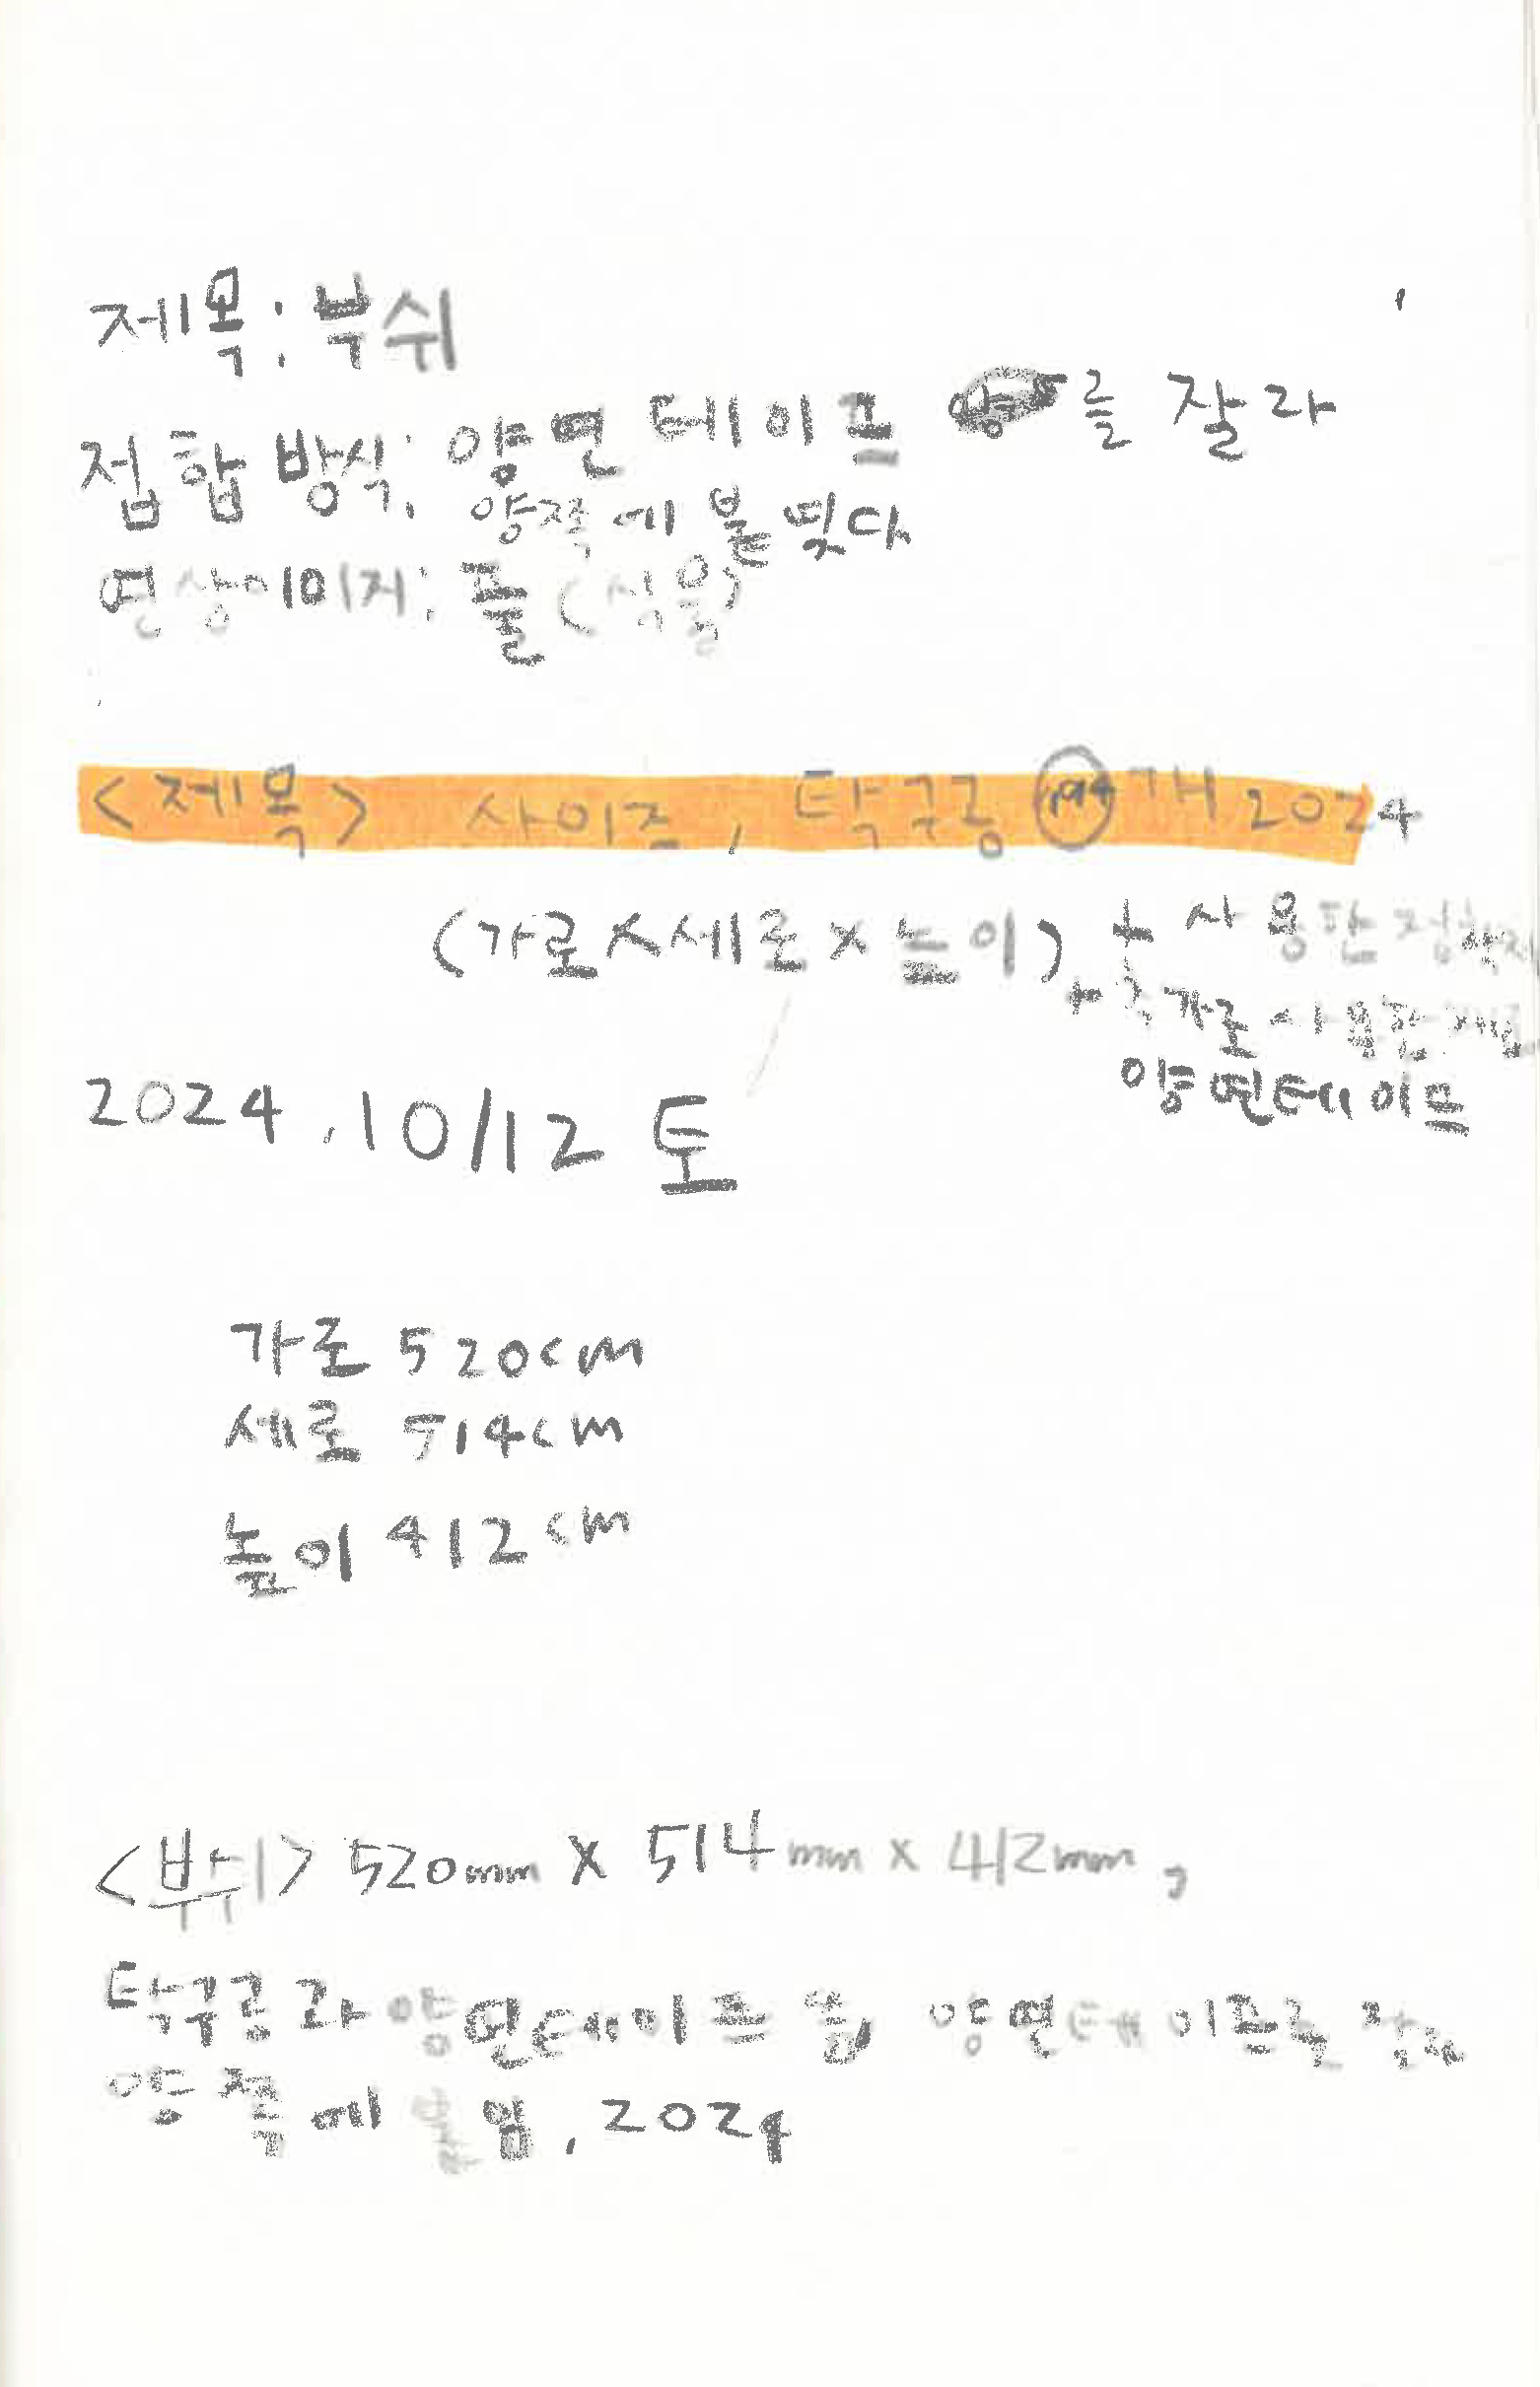 제목: 부쉬
접합 방식: 양면 테이프 를 잘라
양쪽에 붙였다
연상이미지: 풀 (식물)
<제목> 사이즈, 탁구공 194개 2024
(가로×세로×높이) + 사용한 접착제
+ 추가로 사용한 재료
양면테이프
2024.10/12 토
가로 520cm
세로 514cm
높이 412cm
<부쉬> 520mm × 514mm × 412mm,
탁구공과 양면테이프 양면테이프를 잘라
양쪽에 붙임, 2024